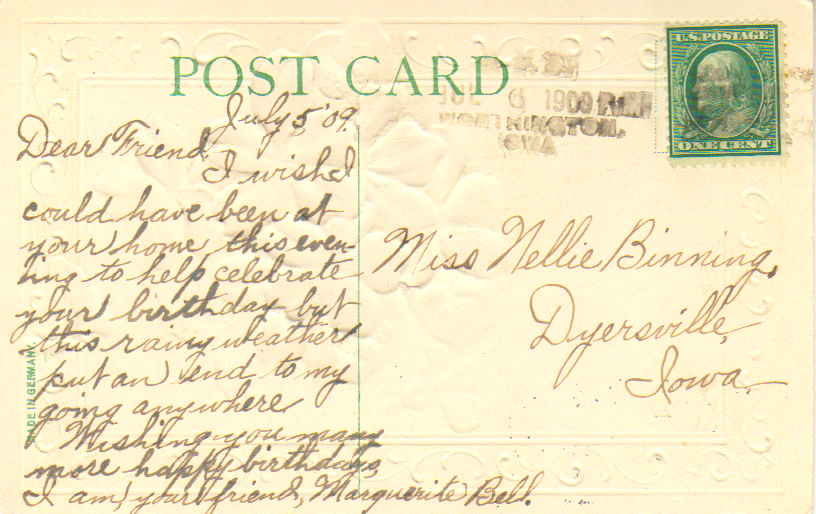 U.S. POSTAGE
ONE CENT
POST CARD
JUL 6 1909 P.M.
WORTHINGTON,
IOWA
July 5 '09.
Dear Friend,
I wish I
could have been at
your home this even-
ing to help celebrate
your birthday but
this rainy weather
put an end to my
going anywhere
Wishing you many
more happy birthdays,
I am, your friend, Marguerite Bell.
Miss Nellie Binning,
Dyersville,
Iowa
MADE IN GERMANY.